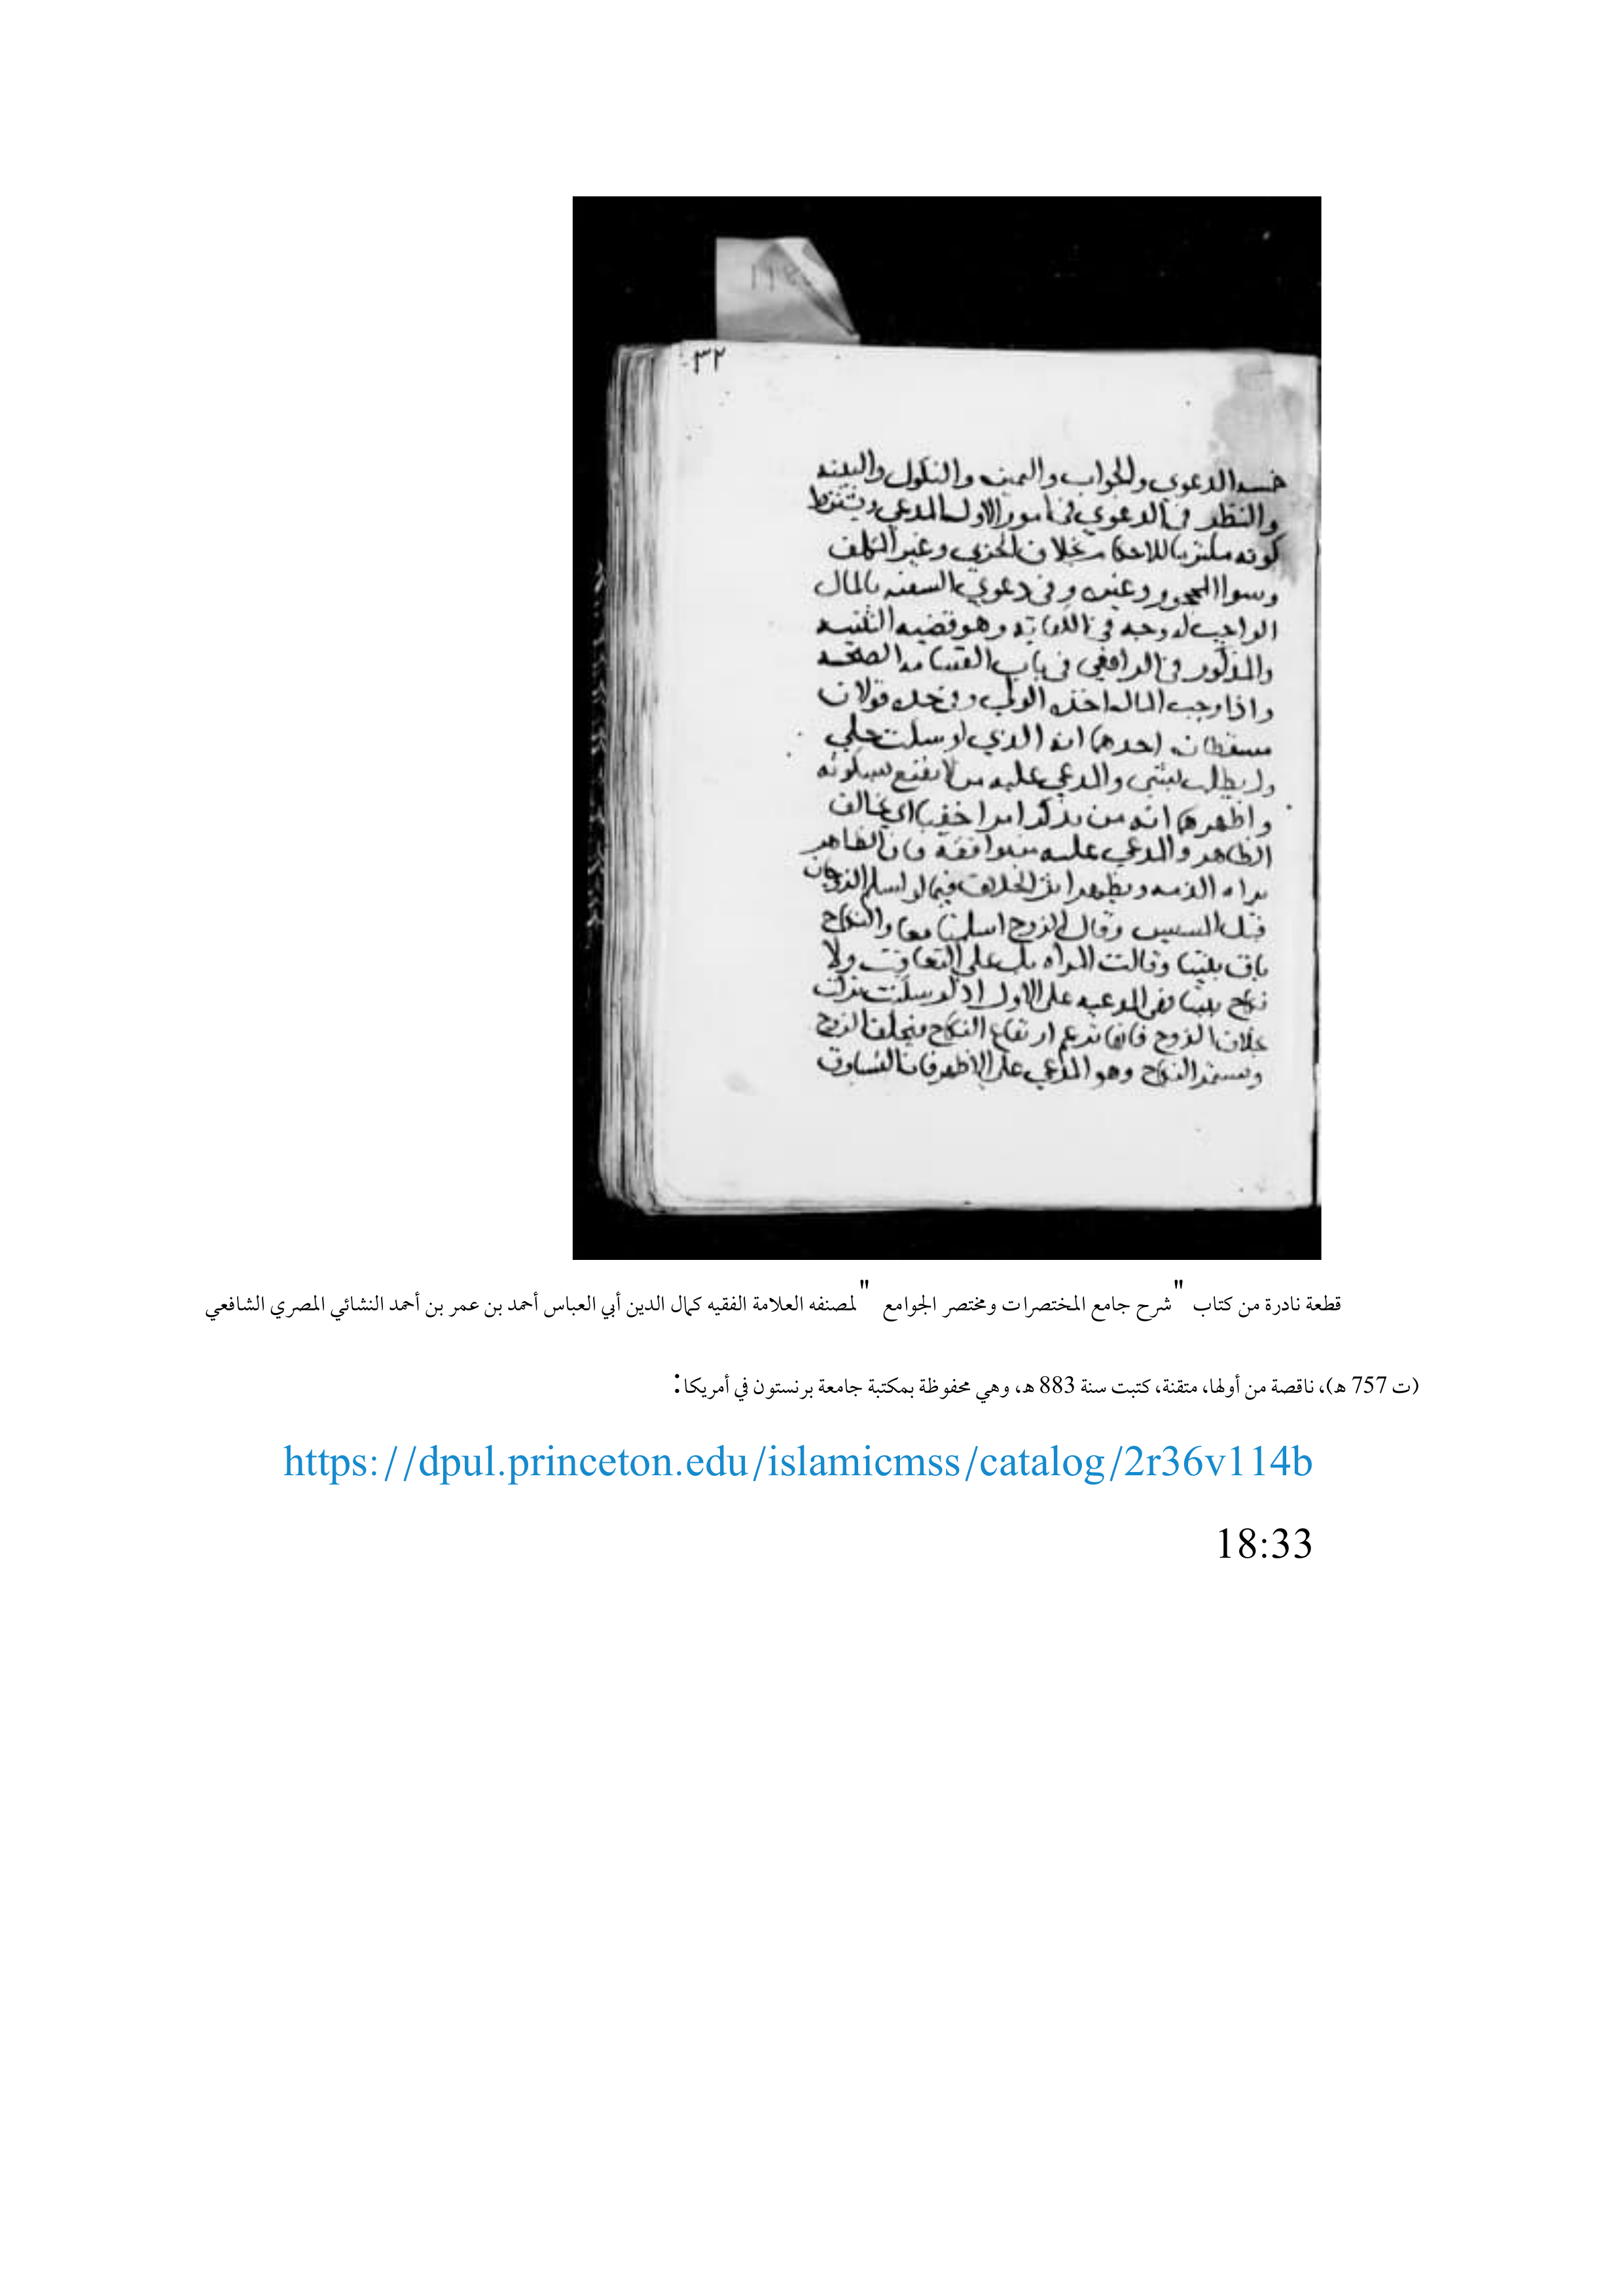 ٣٢
خمسه الدعوي والجواب واليمين والنكول والبينه
والنظر في الدعوي في امور الاول المدعي ويشترط
كونه ملتزما للاحكام بخلاف الحربي وغير المكلف
وسوا المحجور وغيره وفي دعوي السفيه بالمال
الواجب له وجه في الكفايه وهو قضيه التنبيه
والمذكور في الرافعي في باب القسامه الصحه
واذا وجب المال اخذه الولي وفي حده قولان
مستنبطان احدهما انه الذي لو سكت خلي
ولم يطلب بشي والمدعي عليه من لا يقنع بسكوته
واظهرهما انه من يذكر امرا خفيا اي يخالف
الظاهر والمدعي عليه من يوافقه فان الظاهر
براه الذمه ويظهر اثر الخلاف فيما لو اسلم الزوجان
قبل المسيس وقال الزوج اسلمنا معا والنكاح
باق بيننا وقالت المراه بل علي التعاقب ولا
نكاح بيننا فهي المدعيه علي الاول اذ لو سكتت تركت
بخلاف الزوج فانها تزعم ارتفاع النكاح فيحلف الزوج
ويستمر النكاح وهو المدعي علي الاظهر فان التساوق
قطعة نادرة من كتاب "شرح جامع المختصرات ومختصر الجوامع" لمصنفه العلامة الفقيه كمال الدين أبي العباس أحمد بن عمر بن أحمد النشائي المصري الشافعي
(ت 757 هـ)، ناقصة من أولها، متقنة، كتبت سنة 883 هـ، وهي محفوظة بمكتبة جامعة برنستون في أمريكا:
https://dpul.princeton.edu/islamicmss/catalog/2r36v114b
18:33